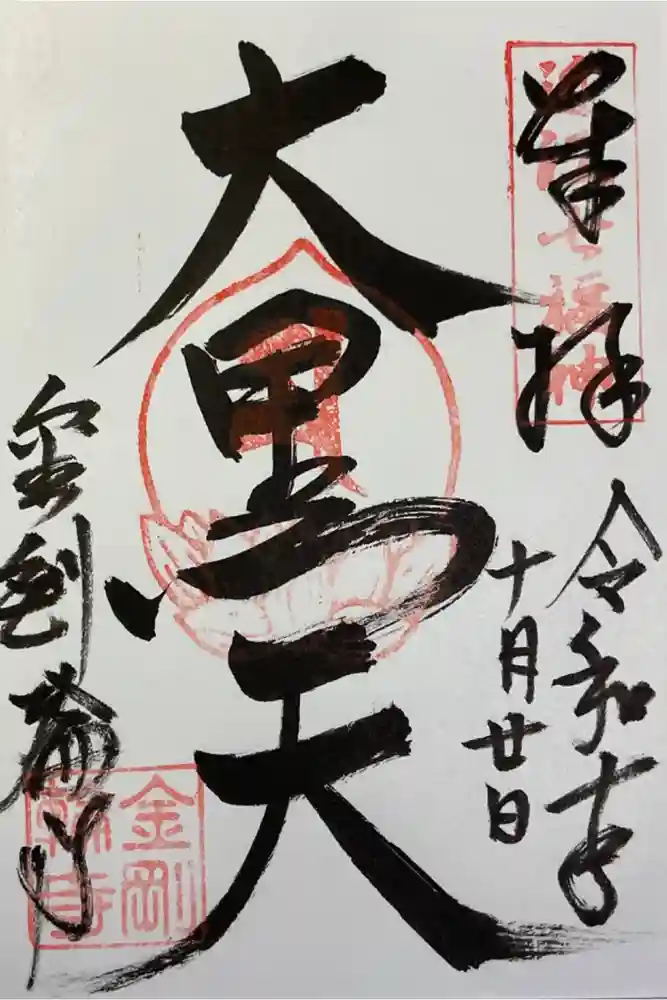 奉拝
七福神
令和
十月廿日
大黒天
金剛輪寺
金剛
輪寺